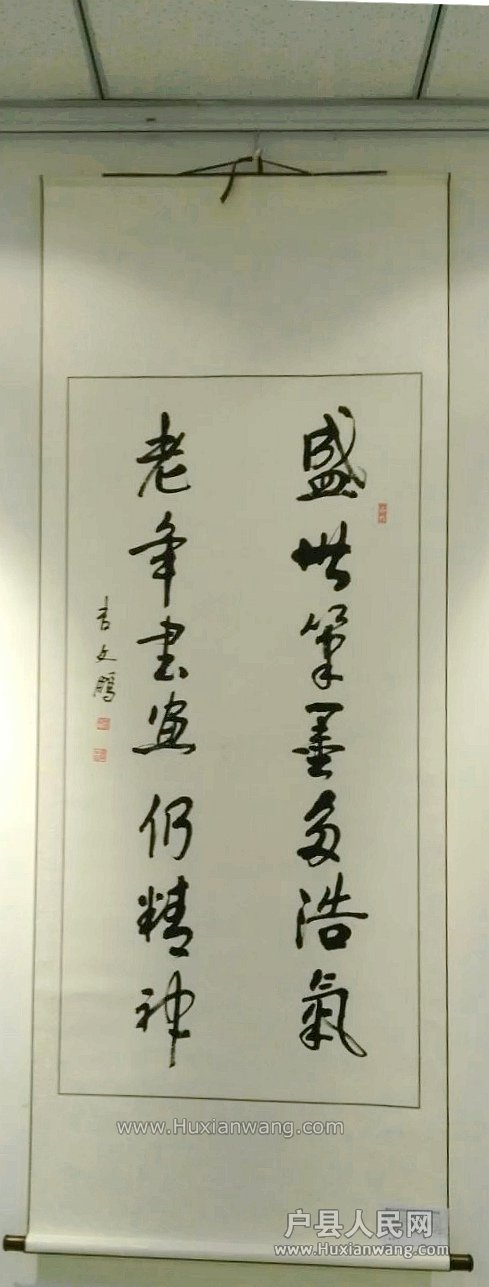 盛世筆墨多浩氣
老年書画仍精神
吉文鵬
www.Huxianwang.com
户县人民网
www.Huxianwang.com